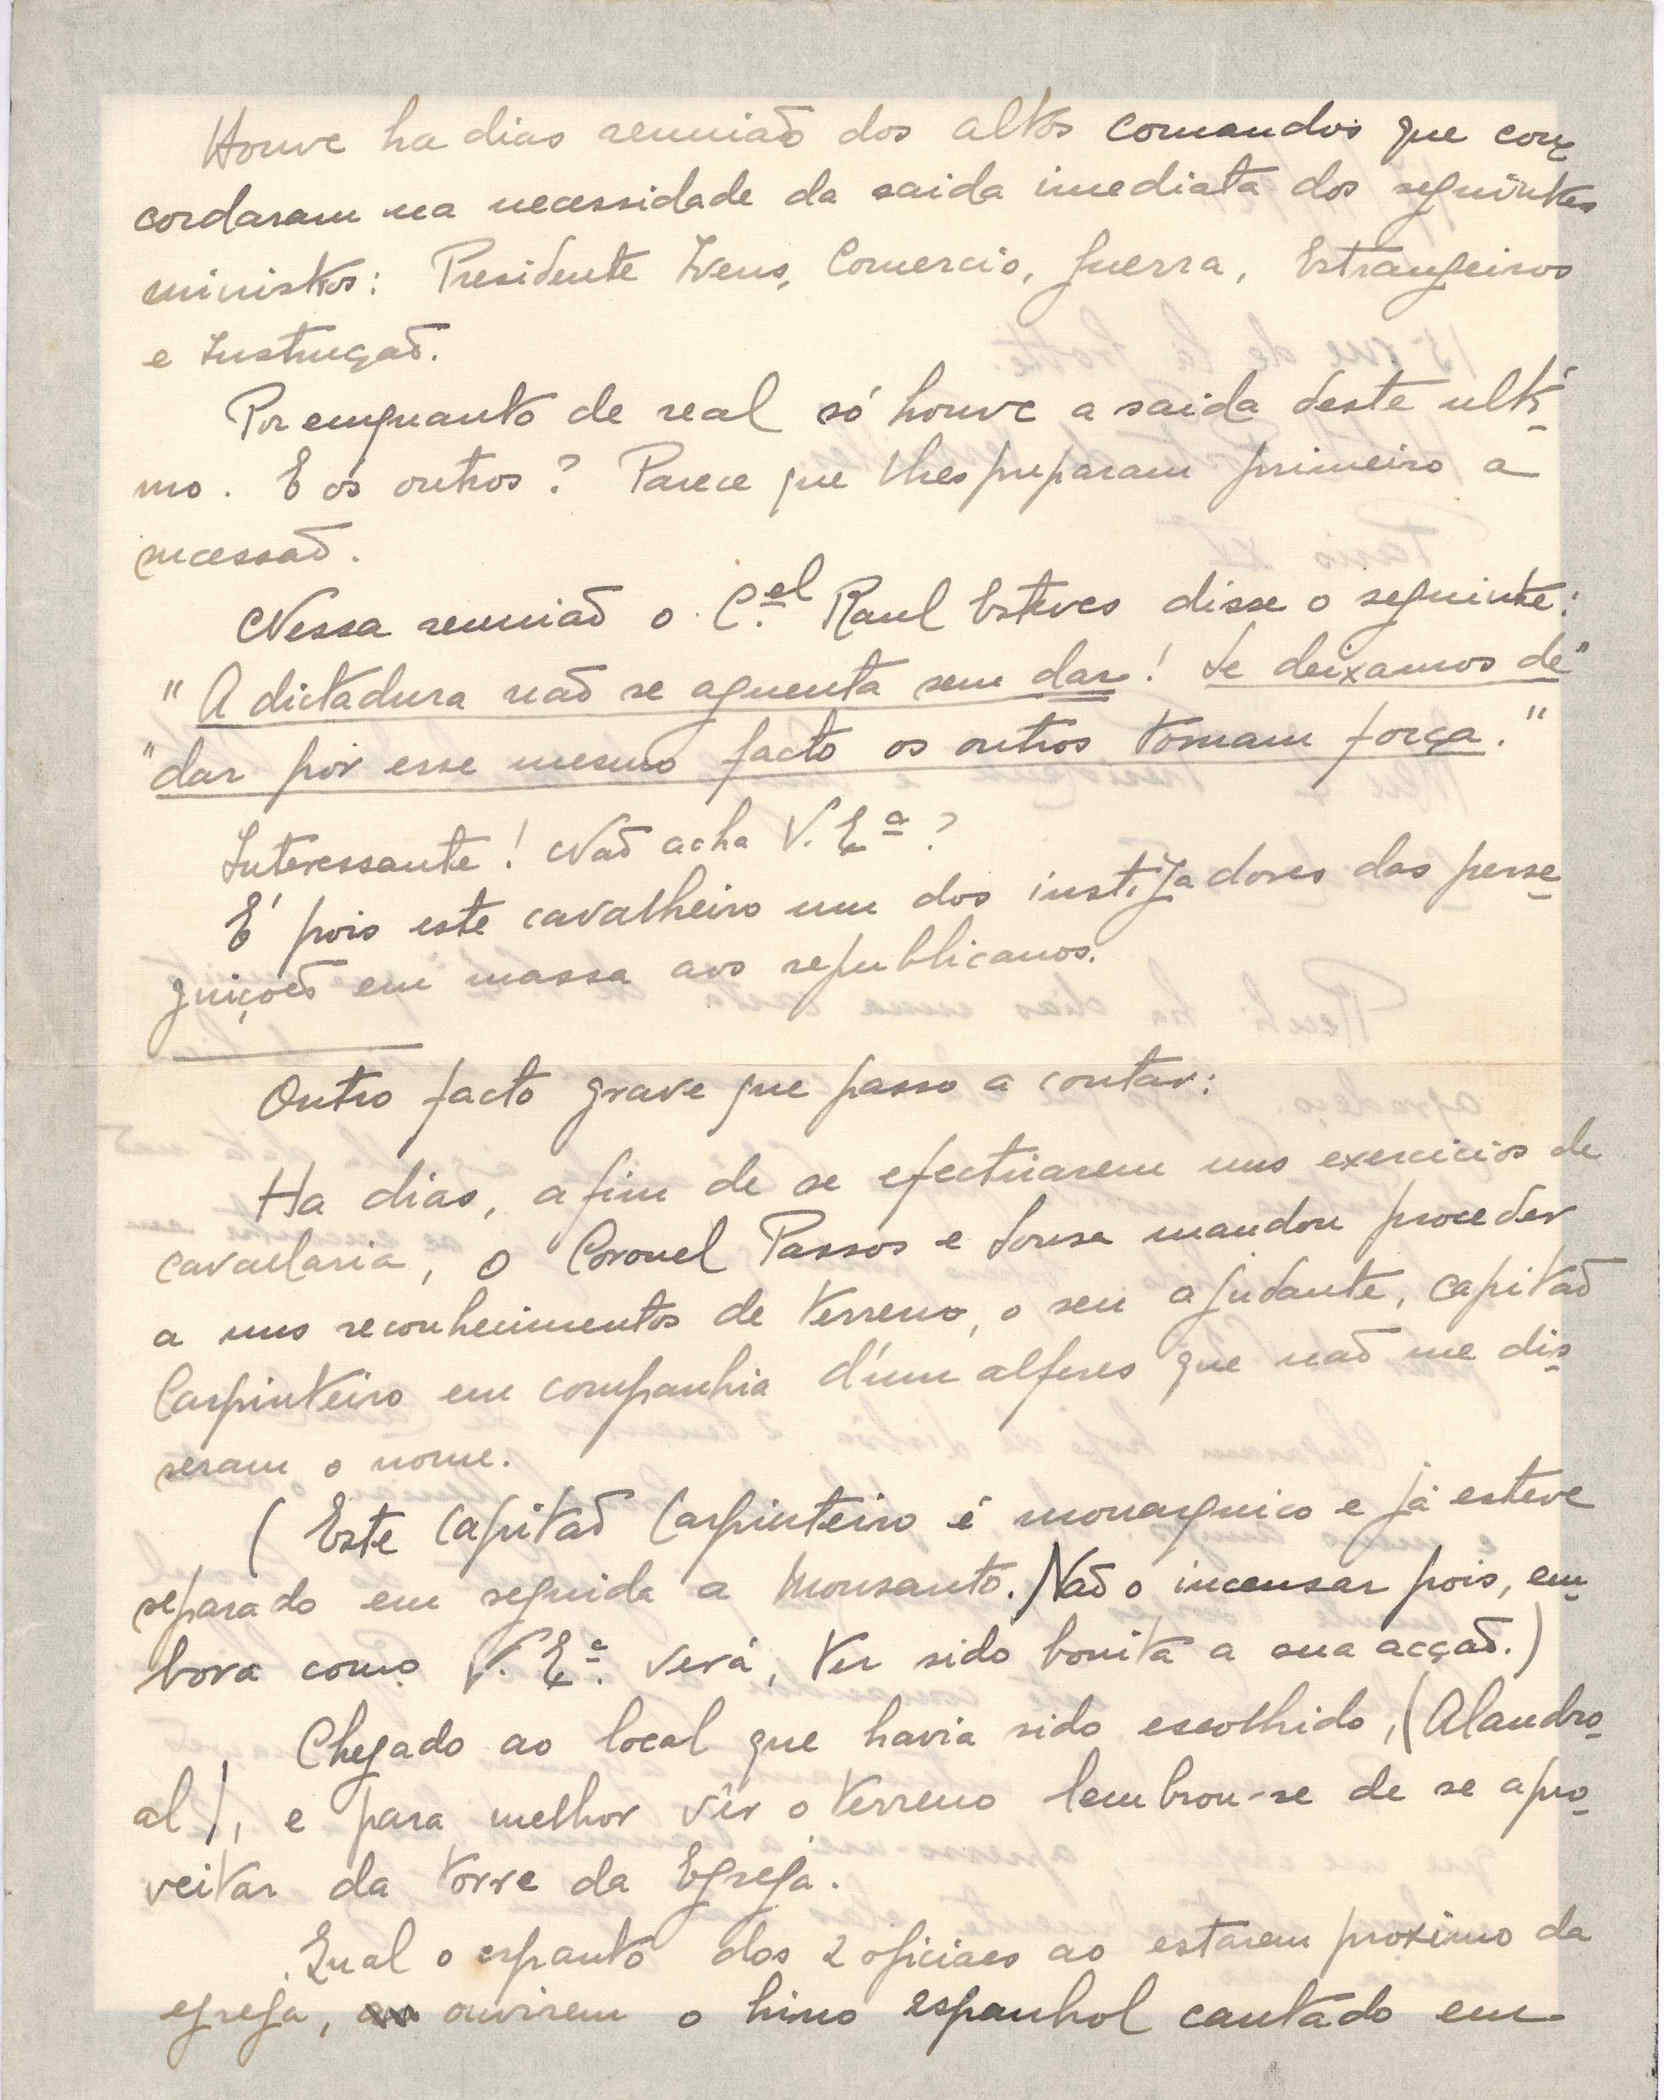 Houve ha dias reunião dos altos comandos que con-
cordaram na necessidade da saida imediata dos seguintes
ministros: Presidente Ivens, Comercio, Guerra, Estrangeiros
e Instrução.
Por emquanto de real só houve a saida deste ulti-
mo. E os outros? Parece que lhes preparam primeiro a
sucessão.
Nessa reunião o C.el Raul Esteves disse o seguinte:
"A dictadura não se aguenta sem dar! Se deixamos de"
"dar por esse mesmo facto os outros tomam força."
Interessante! Não acha V. Exª?
E' pois este cavalheiro um dos instigadores das perse-
guições em massa aos republicanos.
Outro facto grave que passo a contar:
Ha dias, afim de se efectuarem uns exercicios de
cavalaria, o Coronel Passos e Sousa mandou proceder
a uns reconhecimentos de terreno, o seu ajudante, capitão
Carpinteiro em companhia d'um alferes que não me dis-
seram o nome.
(Este Capitão Carpinteiro é monarquico e já esteve
separado em seguida a Monsanto.) Não o incensar pois, em-
bora como V. Exª. verá, ter sido bonita a sua acção.)
Chegado ao local que havia sido escolhido, (Alandro-
al), e para melhor vêr o terreno lembrou-se de se apro-
veitar da torre da Egreja.
Qual o espanto dos 2 oficiaes ao estarem proximo da
egreja, ouvirem o hino espanhol cantado em